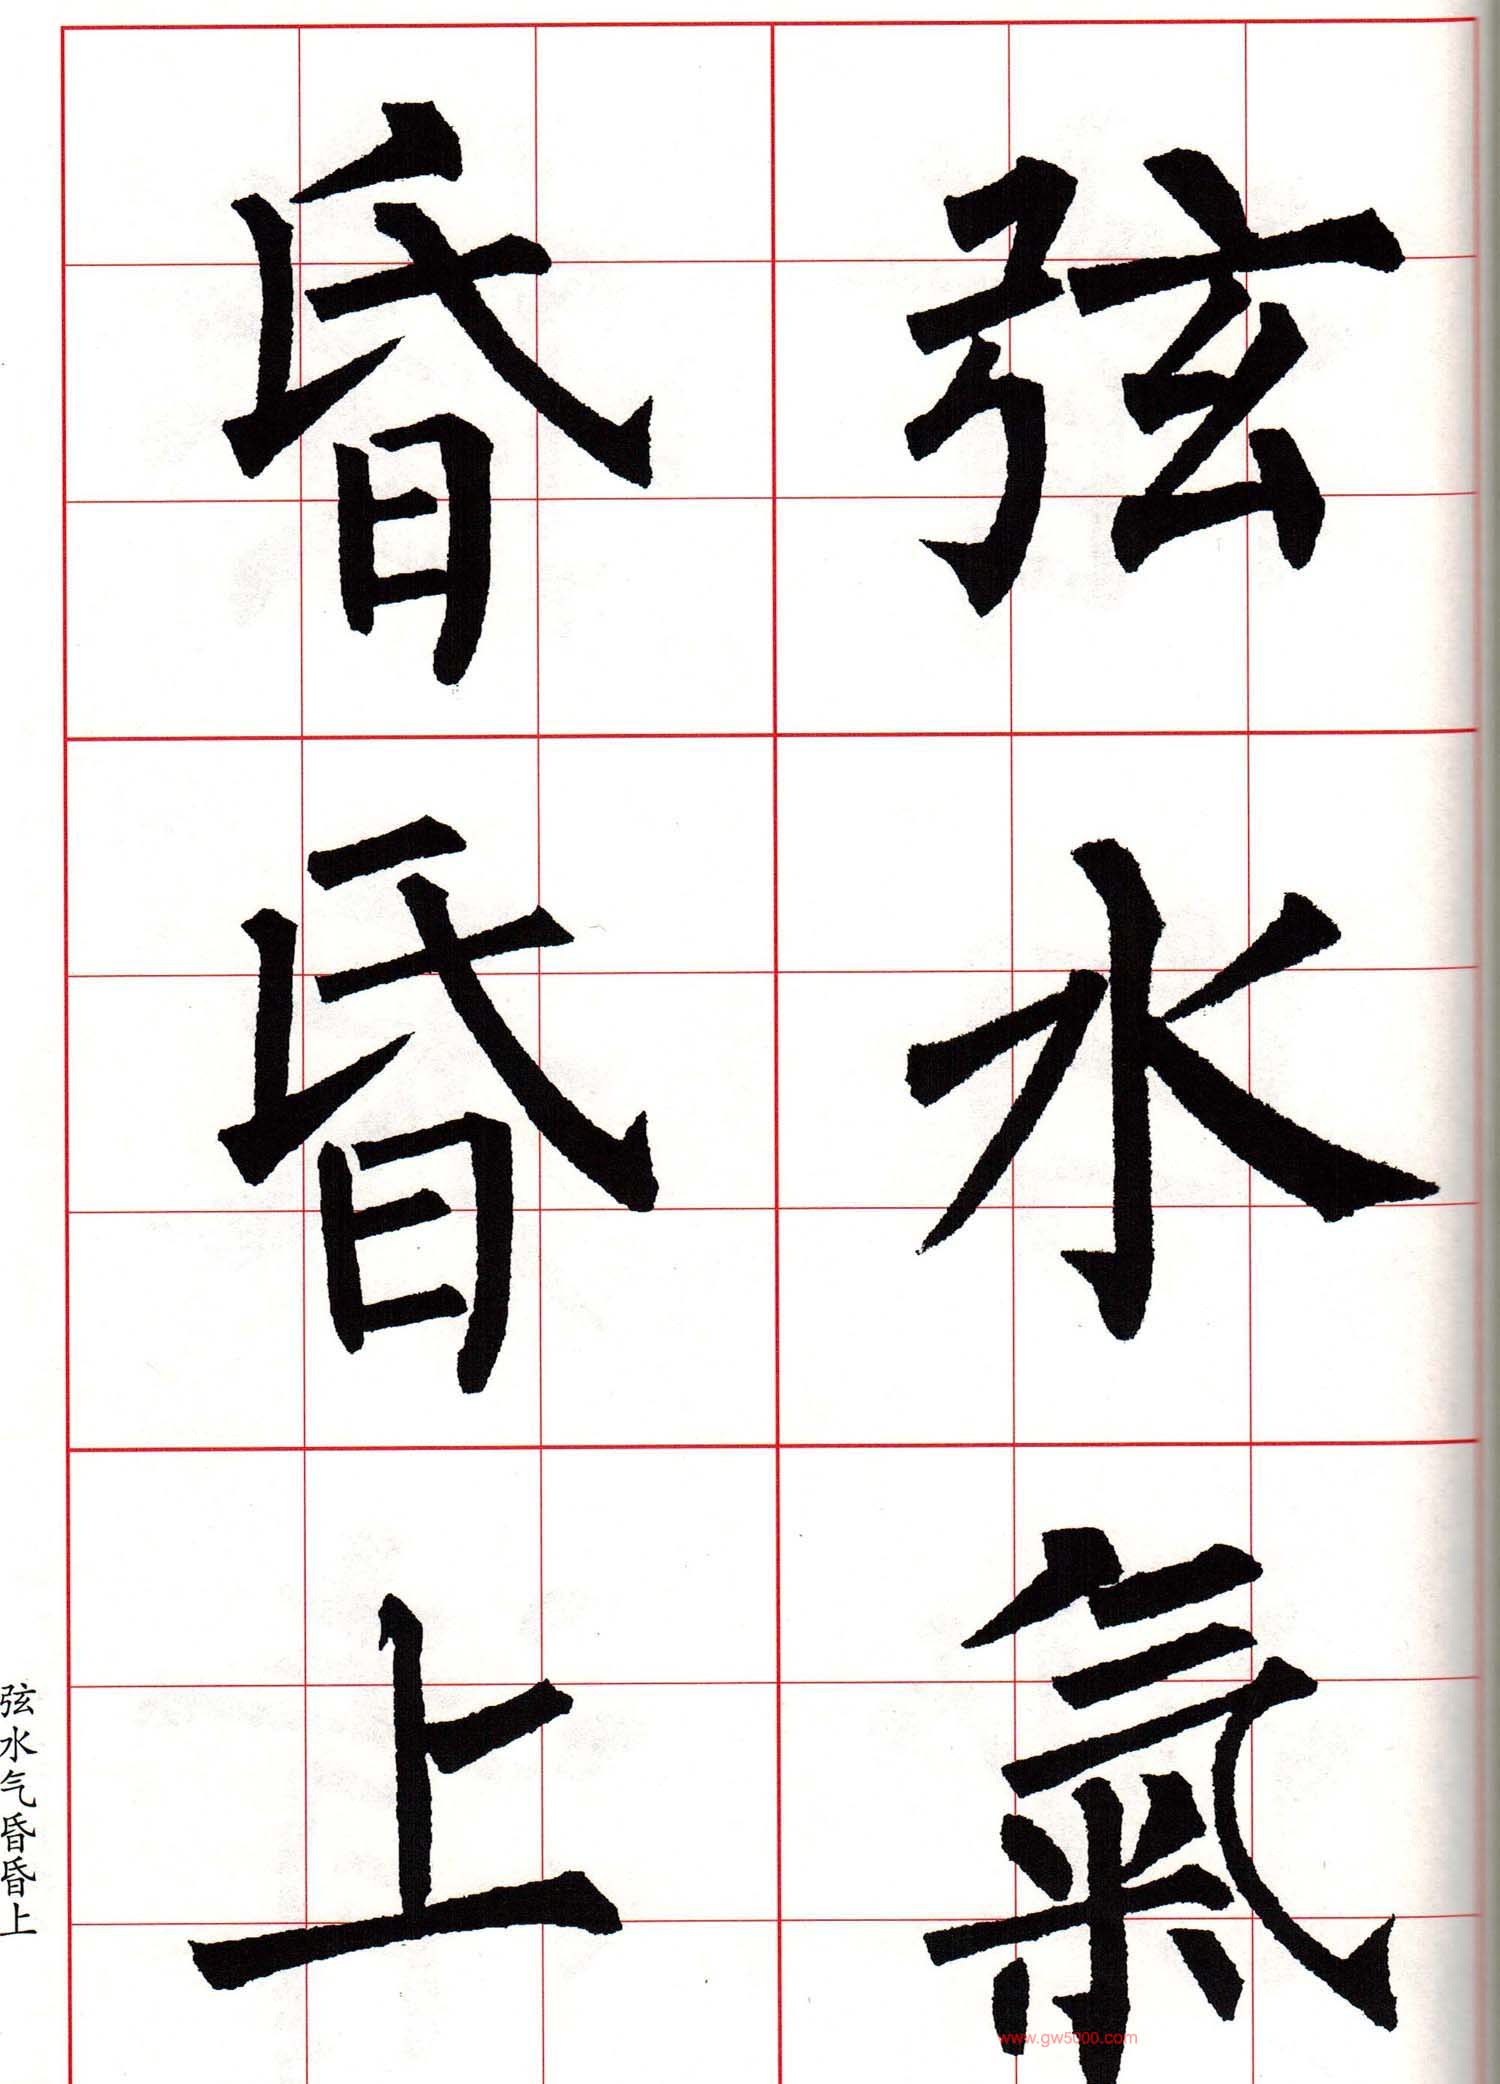 弦水氣
昏昏上
弦水气昏昏上
www.gw5000.com